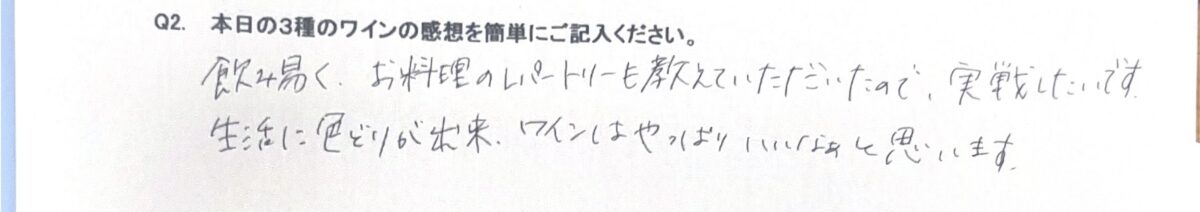 Q2. 本日の3種のワインの感想を簡単にご記入ください。
飲み易く、お料理のレパートリーも教えていただいたので、実戦したいです。
生活に色どりが出来、ワインはやっぱりいいなぁと思います。